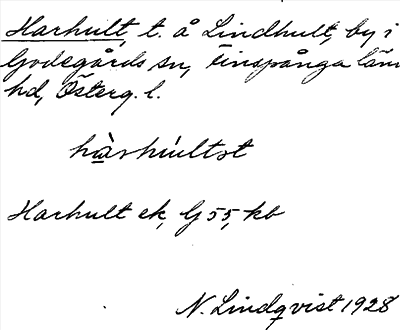 Harhult, t. å Lindhult, by i
Godegårds sn, Finspånga län
hd, Österg. l.
hàrhúltət
Harhult ek, G 55, kb
N. Lindqvist 1928